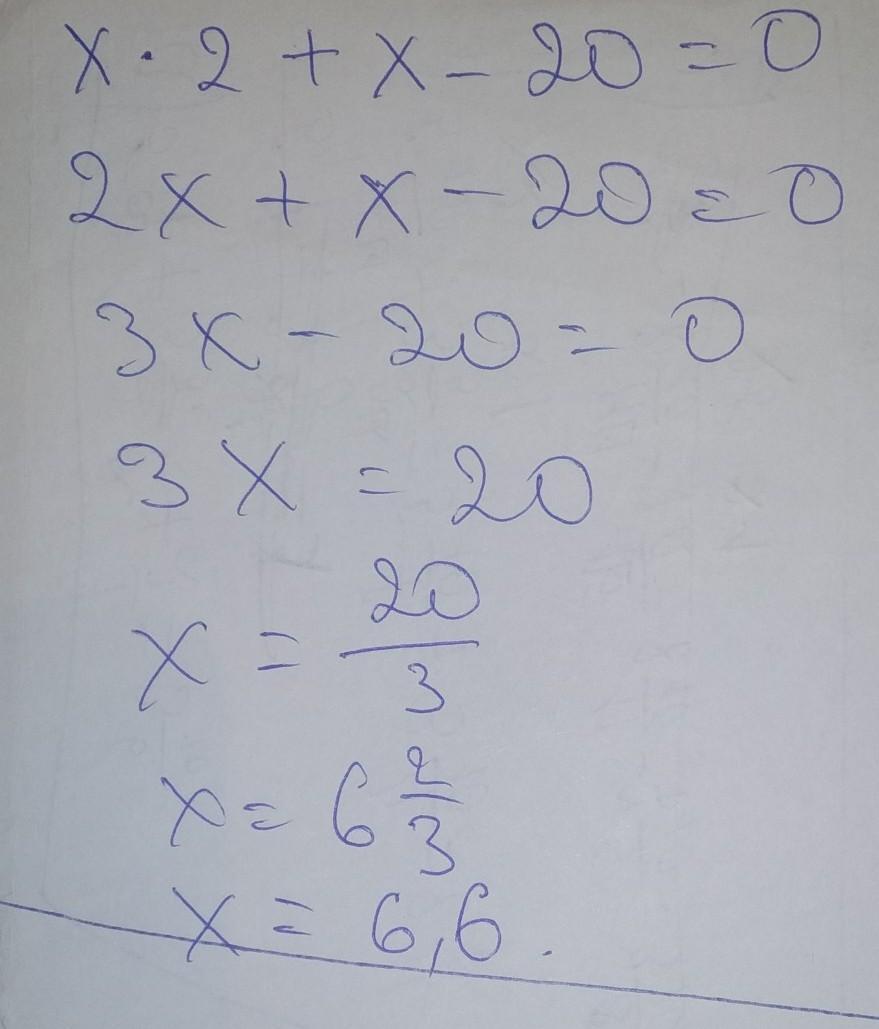 x · 2 + x - 20 = 0
2x + x - 20 = 0
3x - 20 = 0
3x = 20
x = 20/3
x = 6 2/3
x = 6,6.